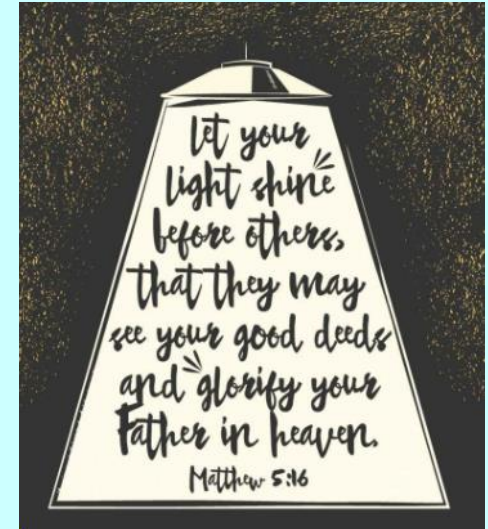 let your
light shine
before others,
that they may
see your good deeds
and glorify your
Father in heaven.
Matthew 5:16